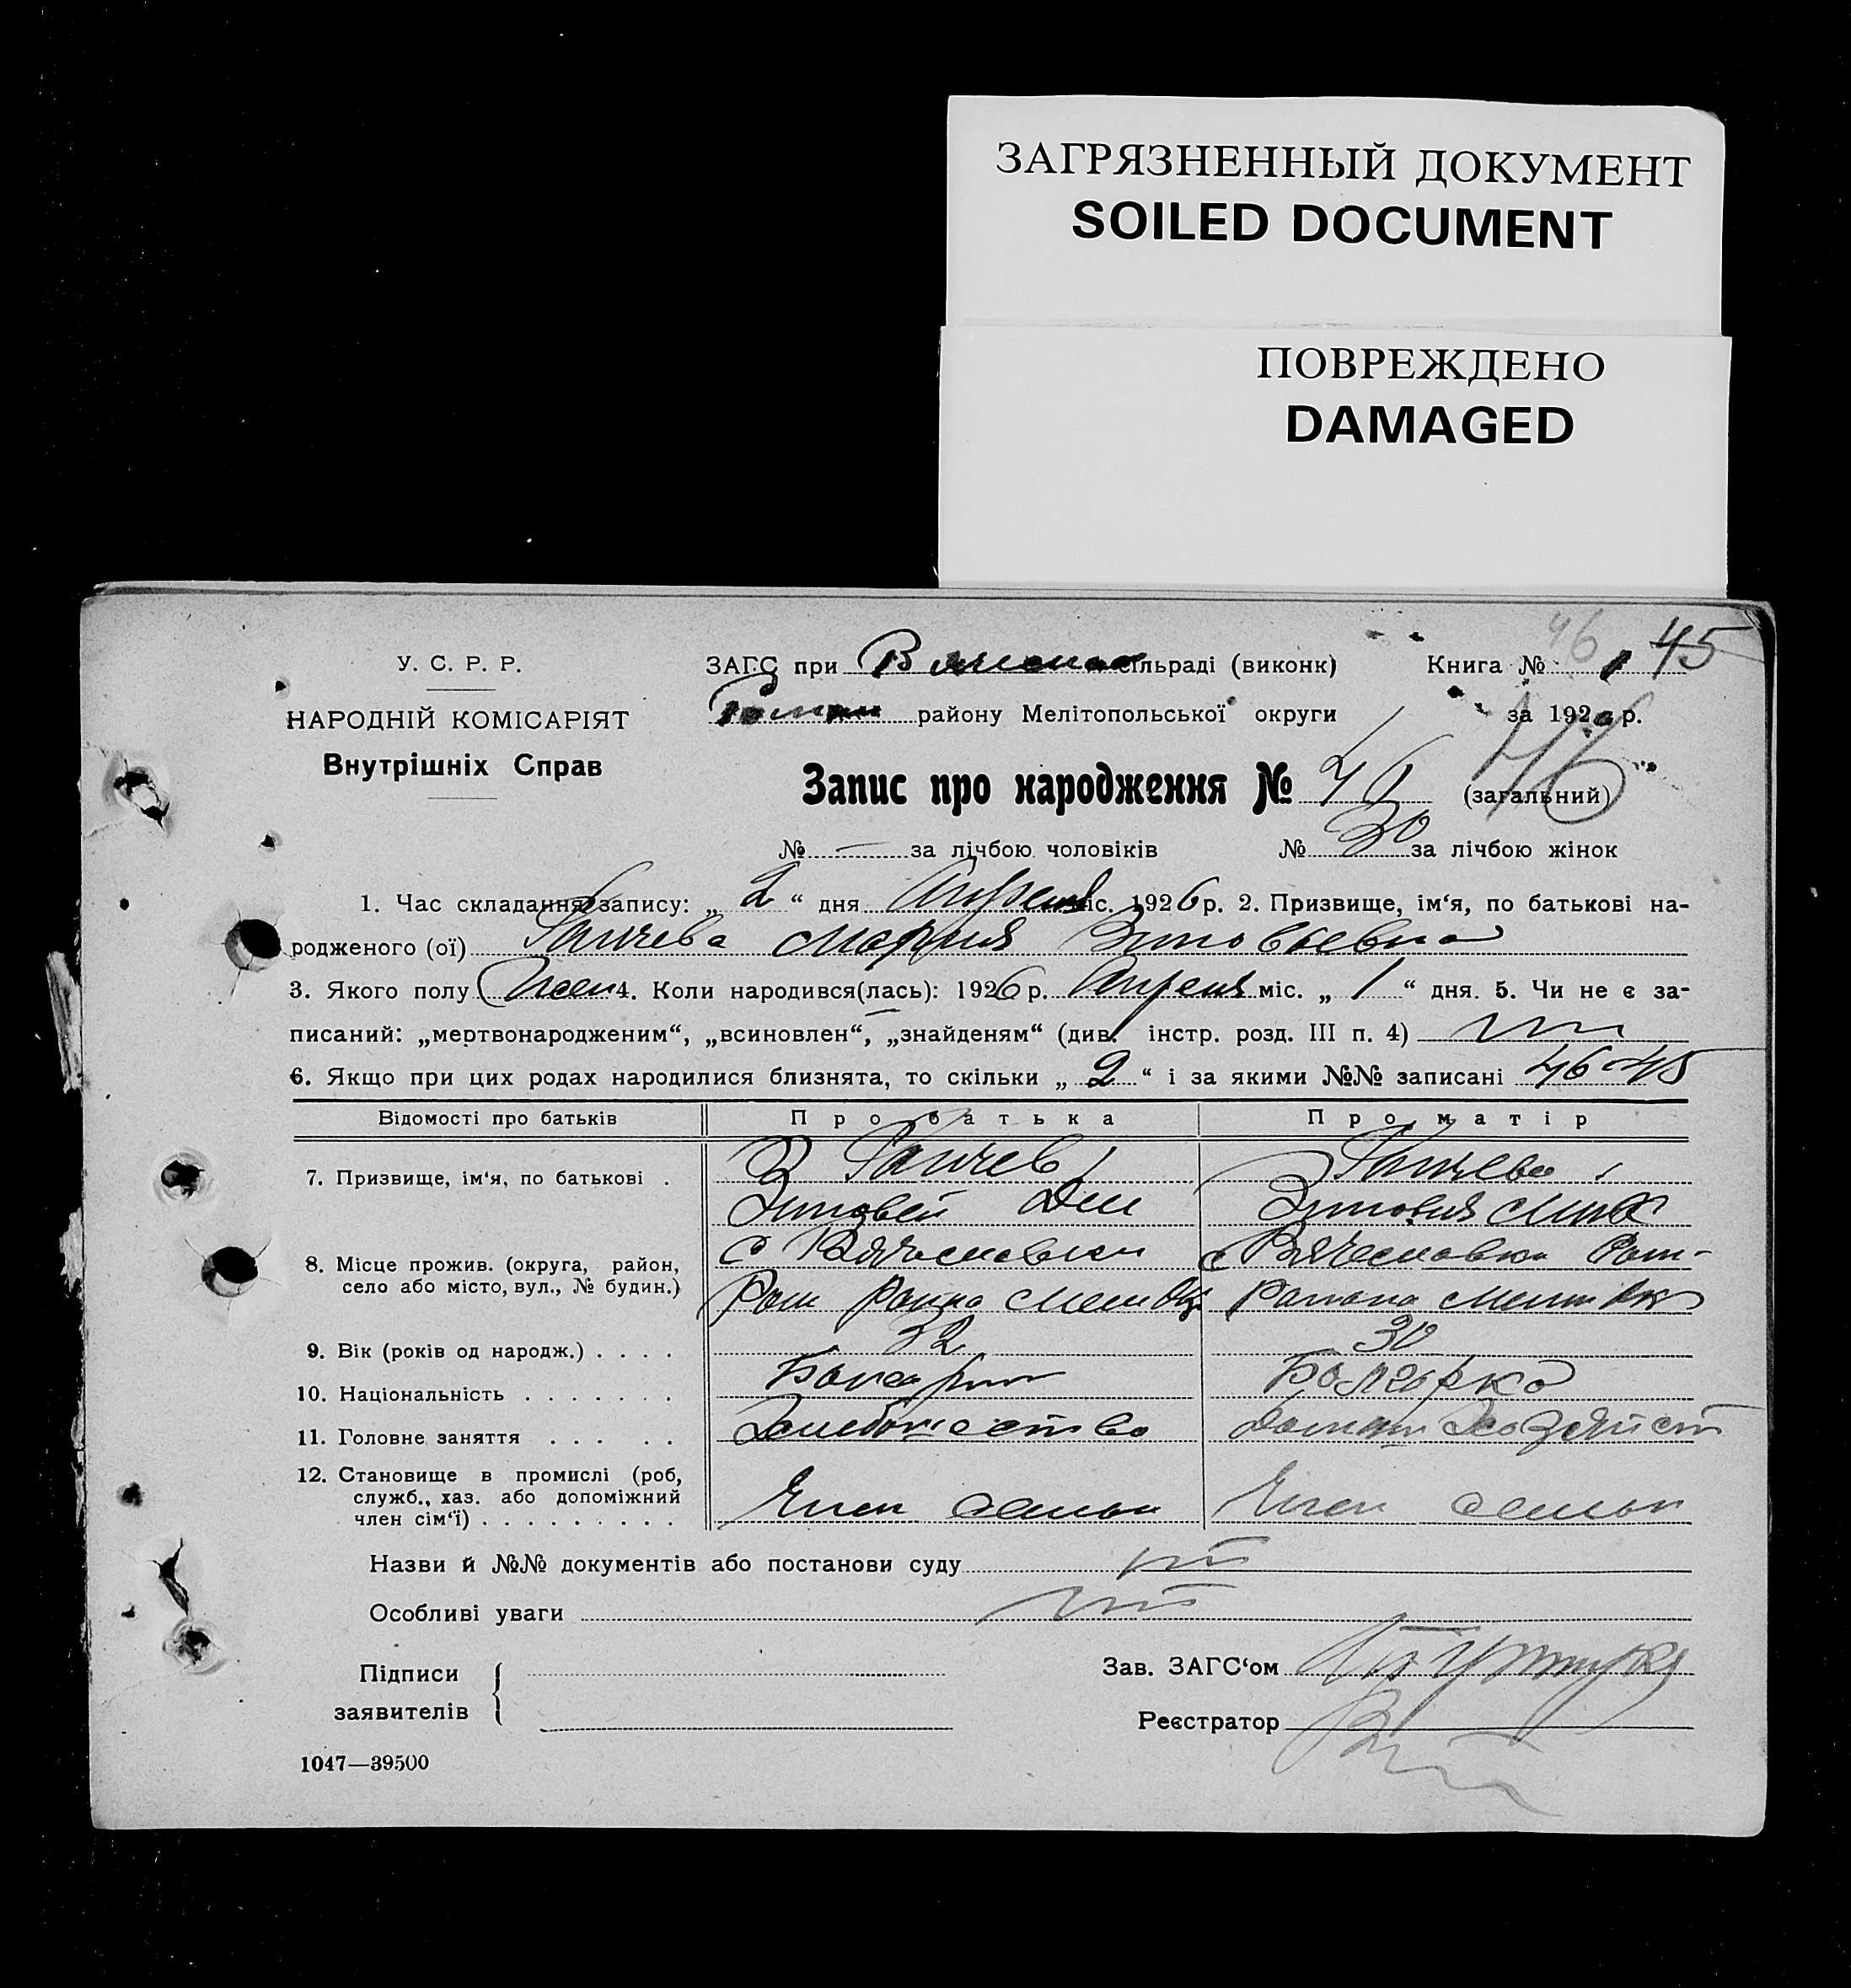 ЗАГРЯЗНЕННЫЙ ДОКУМЕНТ
SOILED DOCUMENT
ПОВРЕЖДЕНО
DAMAGED
46 45
У. С. Р. Р. ЗАГС при сільраді (виконк) Книга №
НАРОДНІЙ КОМІСАРІЯТ району Мелітопольської округи за 1926 р.
Внутрішніх Справ
46
Запис про народження № 46 (загальний)
№ — за лічбою чоловіків № 30 за лічбою жінок
1. Час складання запису: „ 2 “ дня Апреля міс. 1926 р. 2. Призвище, ім‘я, по батькові на-
родженого (ої) Мария Зиновьевна
3. Якого полу Жен 4. Коли народився(лась): 1926 р. Апреля міс. „ 1 “ дня. 5. Чи не є за-
писаний: „мертвонародженим“, „всиновлен“, „знайденям“ (див. інстр. розд. III п. 4)
6. Якщо при цих родах народилися близнята, то скільки „ 2 “ і за якими №№ записані 46-45
Відомості про батьків Про батька Про матір
7. Призвище, ім‘я, по батькові .
Зиновей
8. Місце прожив. (округа, район, с Вячеславки с Вячеславка Ром-
село або місто, вул., № будин.) Ром
9. Вік (років од народж.) . . . . 32 30
10. Національність . . . . . . . Болгарин Болгарка
11. Головне заняття . . . . . Домаш Хозяйст
12. Становище в промислі (роб,
служб., хаз. або допоміжний Член семьи Член семьи
член сім‘ї) . . . . . . . . .
Назви й №№ документів або постанови суду нет
Особливі уваги нет
Підписи Зав. ЗАГС‘ом
заявителів Реєстратор
1047—39500